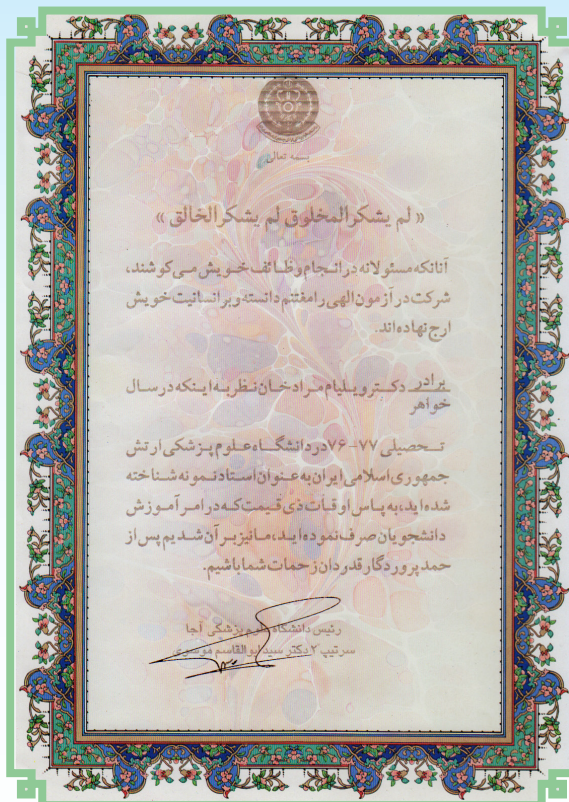 بسمه تعالی
« لم يشكرالمخلوق لم يشكرالخالق »
آنانکه مسئولانه در انجام وظائف خویش می‌کوشند،
شرکت در آزمون الهی را مغتنم دانسته و بر انسانیت خویش
ارج نهاده‌اند.
برادر دکتر ویلیام مرادخان نظر به اینکه در سال
خواهر
تحصیلی ۷۷-۷۶ در دانشگاه علوم پزشکی ارتش
جمهوری اسلامی ایران به عنوان استاد نمونه شناخته
شده‌اید، به پاس اوقات ذی قیمت که در امر آموزش
دانشجویان صرف نموده اید، ما نیز بر آن شدیم پس از
حمد پروردگار قدردان زحمات شما باشیم.
رئیس دانشگاه علوم پزشکی آجا
سرتیپ ۲ دکتر سید ابوالقاسم موسوی